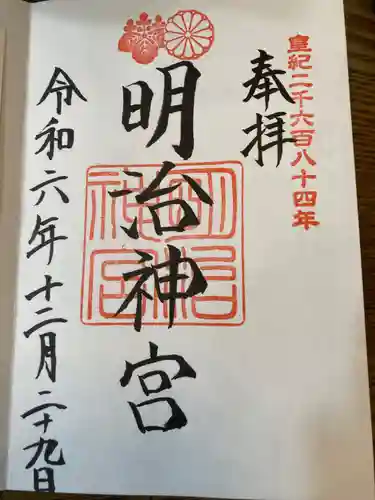 皇紀二千六百八十四年
奉拝
明治神宮
明治神宮
令和六年十二月二十九日